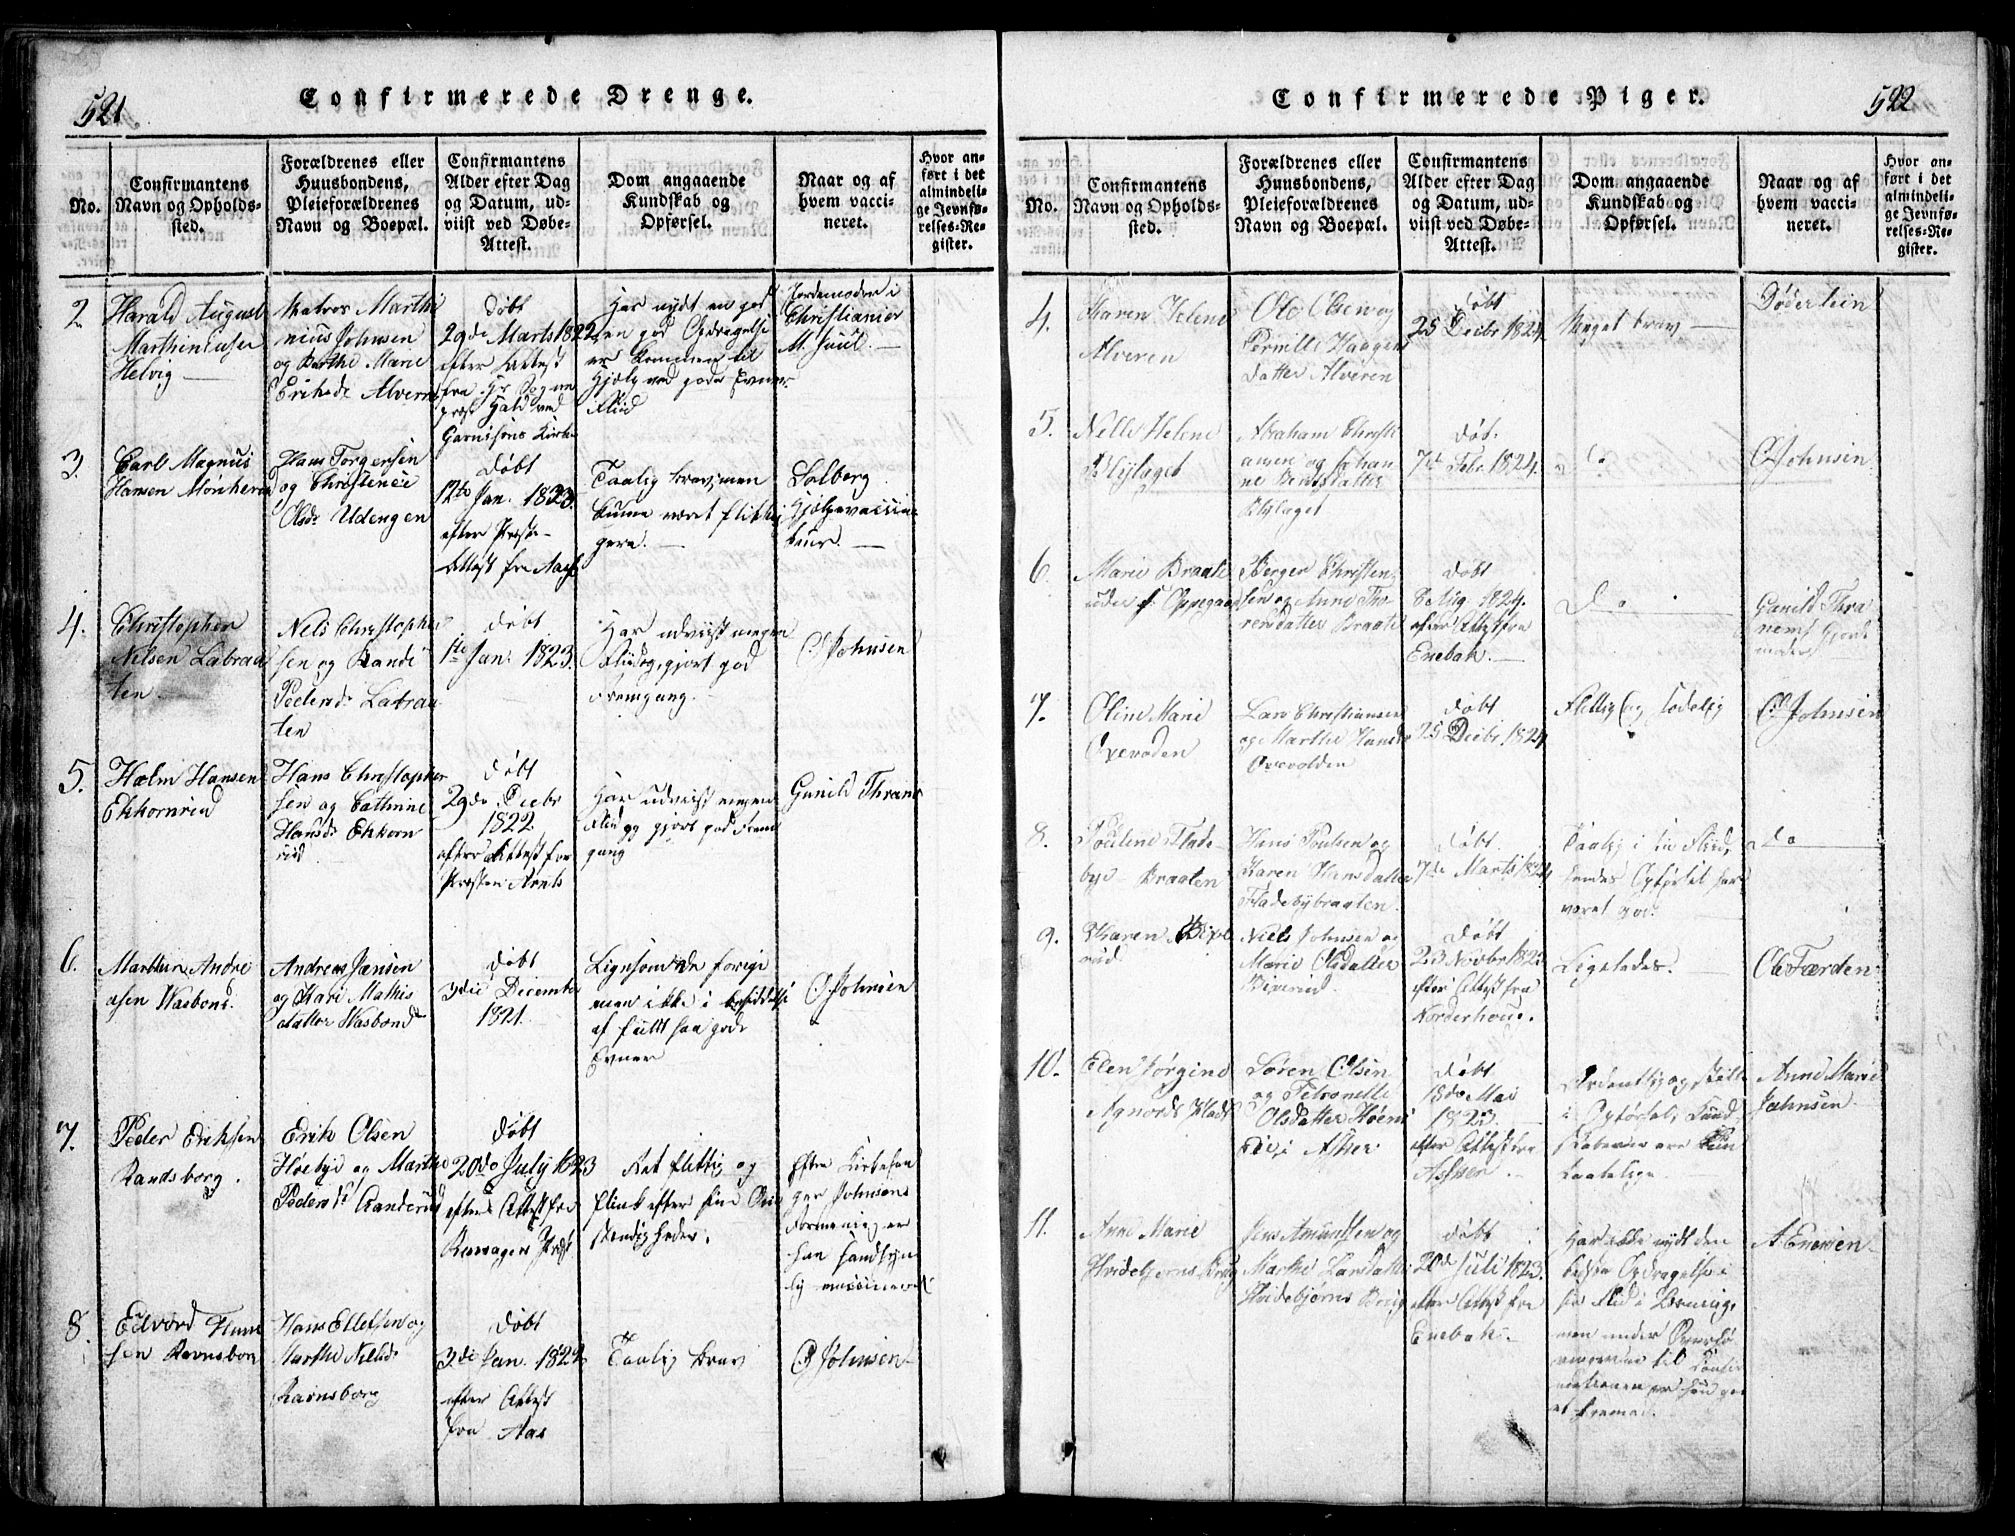 521
Confirmerede Drenge.
No.
Confirmantens
Navn og Opholds-
sted.
Forældrenes eller
Huusbondens,
Pleieforældrenes
Navn og Boepæl.
Confirmantens
Alder efter Dag
og Datum, ud-
viist ved Døbe-
Attest.
Dom angaaende
Kundskab og
Opførsel.
Naar og af
hvem vacci-
neret.
Hvor an-
ført i det
almindeli-
ge Jevnfø-
relses-Re-
gister.
2.
Harald August
Marthiniuser
Helvig
Matros Marthi
nius Johnsen
og Berthe Marie
Døbt
29de Marts 1822
efter Attest
fra Hr Sogne
præst Hald ved
Garnisons Kirke
Har nydt en god
Opdragelse
Hjelp ved gode Evner
Fliid
Jordemoder i
Christiania
M. Juul.
3.
Carl Magnus
Hansen
Hans Torgersen
og Christence
Olsdr Udengen
Døbt
12te Jan. 1823.
efter Præste-
Attest fra Aas
Taalig brav, men
kunne været flitti
gere.
Solberg
Hjelpevaccina-
teur.
4.
Christopher
Nilsen Labraa
ten
Nels Christopher
sen og Randi
Pedersdr Labraa
ten
Døbt
1ste Jan. 1823.
Har udviist megen
Fliid og gjort god
Fremgang.
O Johnsen
5.
Halvor Hansen
Ekkornrud
Hans Christopher
sen og Cathrine
Hansdr Ekkorn
rud
Døbt
29de Decbr
1822
efter Attest fra
Præsten Arnts
Har udviist megen
Fliid og gjort god Frem
gang
Gunild Thrane
6.
Marthin Andre
asen Wasbond.
Andreas Jansen
og Kari Mathis
datter Wasbond
Døbt
3die December
1821.
Ligesom de forrige
men ikke i besiddelse
af fuldt saa gode
Evner
O Johnsen
7.
Peder Eriksen
Randsborg.
Erik Olsen
Høebye og Marthe
Pedersdr
Døbt
20de July 1823
efter Attest fra
Præst
Ret flittig og
flink efter sine Om
stendigheder.
Efter Kirkesan
ger Johnsens
Formening er
han sandsyn
lig vaccineret
8.
Edvard Han
sen Ravnsborg
Hans Ellefsen og
Marthe Nilsdr
Ravnsborg
Døbt
3die Jan. 1822
efter Attest
fra Aas
Taalig brav
O Johnsen
Confirmerede Piger.
522
No.
Confirmantens
Navn og Opholds-
sted.
Forældrenes eller
Huusbondens,
Pleieforældrenes
Navn og Boepæl.
Confirmantens
Alder efter Dag
og Datum, ud-
viist ved Døbe-
Attest.
Dom angaaende
Kundskab og
Opførsel.
Naar og af
hvem vacci-
neret.
Hvor an-
ført i det
almindeli-
ge Jevnfø-
relses-Re-
gister.
4.
Karen Helene
Alveren
Ole Olsen og
Pernille Haagens
datter Alveren
Døbt
25 Decbr 1824.
Meget brav
Døderlein
5.
Nelle Helene
Abraham Christi
ansen og Johan
ne Bentsdatter
Døbt
7de Febr 1824.
do
O Johnsen
6.
Marie Braate
under Oppegaar
Berger Christen
sen og Anne Tho
resdatter Braate
Døbt
8 Aug 1824.
efter Attest fra
Enebak.
Do
Gunild Thra
nems Gjord
moder
7.
Oline Marie
Oxevolden
Lars Christiansen
og Marthe Hansdr
Oxevolden
Døbt
25 Decbr 1824
Flittig og sædelig
O Johnsen
8.
Pouline Flade-
bye Braaten
Hans Poulsen og
Karen Hansdatter
Fladebybraaten.
Døbt
7de Marts 1824
Taalig i sin Fliid,
hendes Opførsel har
været god.
do
9.
Karen Bive
rud
Niels Johnsen og
Marie Olsdatter
Biverud.
Døbt
23 Novbr 1823
efter Attest fra
Norderhoug.
Ligeledes.
Ole Færden
10.
Elen Jørgine
Agnords Plads
Søren Olsen
og Petronelle
Olsdatter
i Asker
Døbt
18de Mai
1823.
efter Attest fra
Asker.
Ordentlig og stille
i Opførsel, Kund
skaberne ere kun
taalelige.
Anne Marie
Johnsen.
11.
Anne Marie
Hvidebjørns Brug
Jens Amundsen og
Marthe Larsdatter
Hvidebjørns Brug
Døbt
20de Juli 1823.
efter Attest fra
Enebak.
Har ikke nydt den
bedste Opdragelse
men under
til Confir
mationen er hun
A Enersen